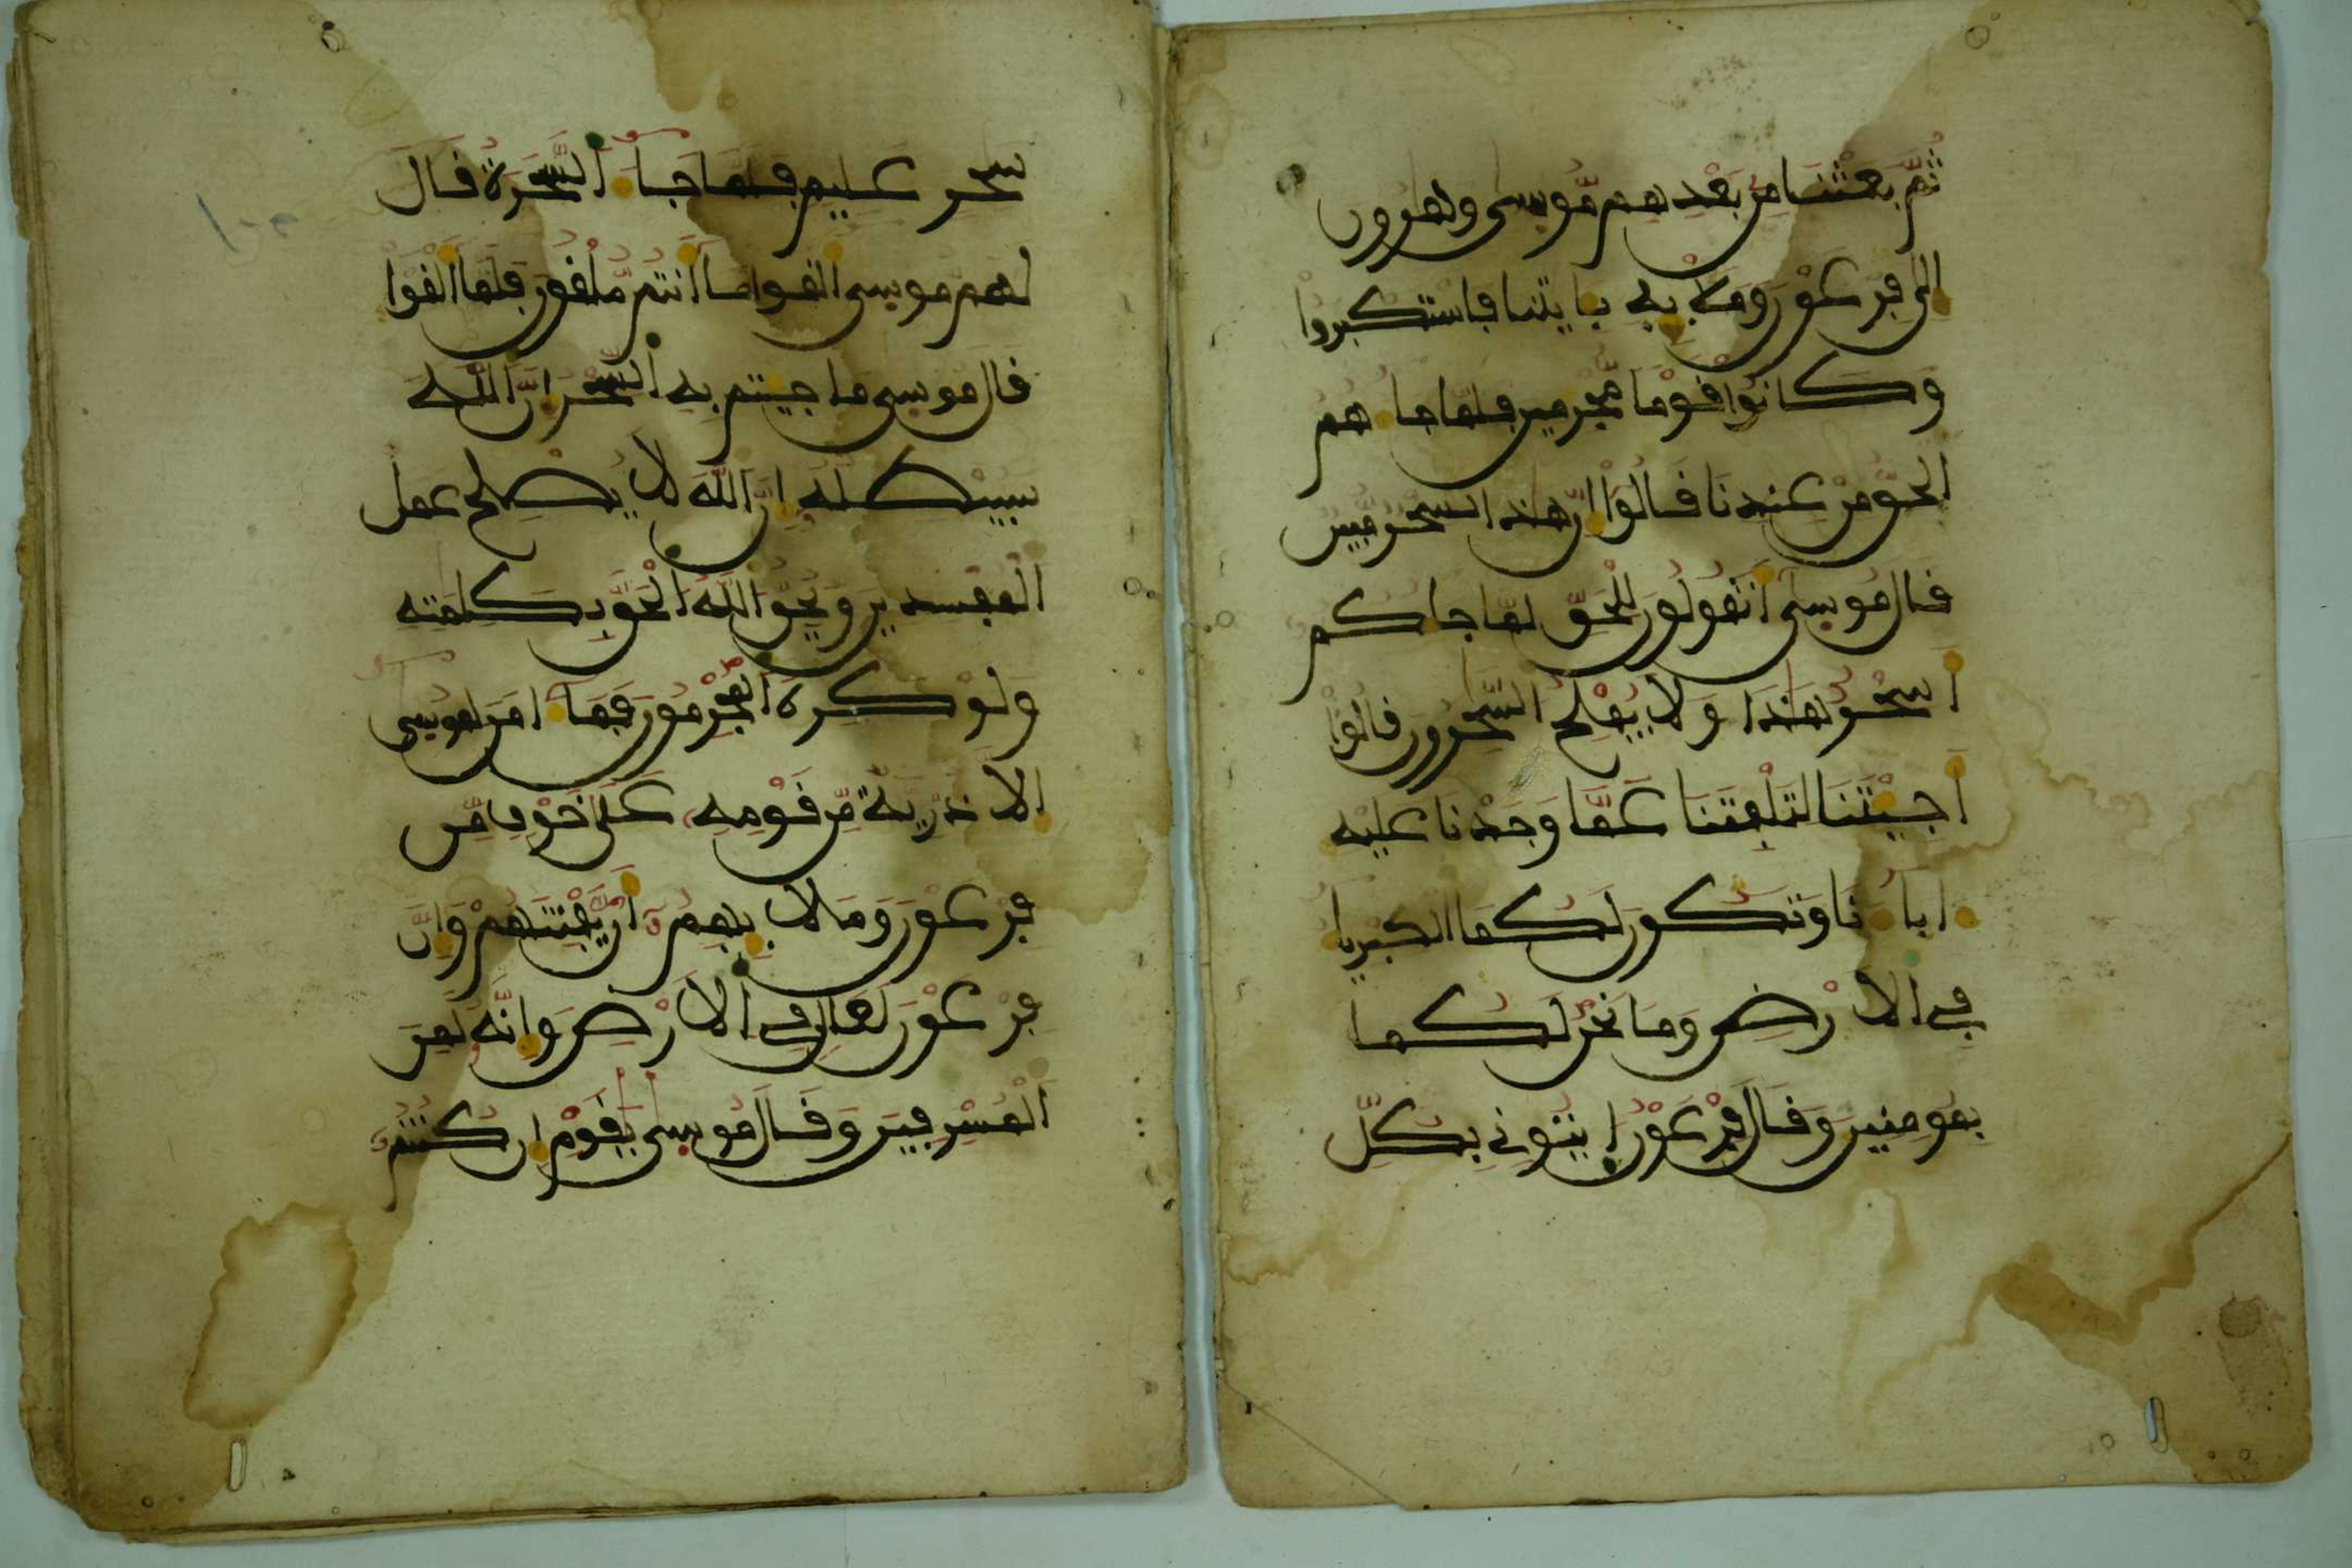 ثُمَّ بَعَثْنَا مِن بَعْدِهِم مُّوسى وهرون
إلى فِرْعَوْنَ وَمَلَإِيْهِ بـايتنا فاستكبروا
وَكانُوا قَوْمًا مُّجْرِمين فلمّا جاءهم
الحَقُّ مِنْ عِندِنَا قَالُوا إنّ هذا لسحرٌ مُّبين
قال مُوسى أَتَقُولُونَ لِلْحَقِّ لمّا جاءكم
أسحرٌ هذا وَلا يُفْلِحُ السَّحِرُونَ قَالُوا
أَجِئْتَنَا لِتَلْفِتَنَا عَمَّا وَجَدْنَا عَلَيْهِ
ءابَاءَنَا وَتَكُونَ لَكُمَا الكبرياءُ
فِي الأَرْضِ وَمَا نَحْنُ لَكُمَا
بِمُومِنِينَ وَقَالَ فِرْعَوْنُ ايتُونِي بِكُلِّ
سحرٍ عليم فلما جاءَ السَّحَرَةُ قَالَ
لهم مُّوسى ألقوا ما أَنتُم مُّلْقُونَ فَلَمَّا أَلْقَوْا
قال مُوسى ما جيتم به السِّحْرُ إِنَّ اللَّهَ
سَيُبْطِلُهُ إِنَّ اللَّهَ لَا يُصْلِحُ عَمَلَ
المُفْسِدِينَ وَيُحِقُّ اللَّهُ الْحَقَّ بِكَلِمَتِهِ
وَلَوْ كَرِهَ الْمُجْرِمُونَ فَمَا ءامَنَ لِمُوسى
إلا ذُرِّيَّةٌ مِّن قَوْمِهِ عَلَى خَوْفٍ مِّن
فِرْعَوْنَ وَمَلَإِيْهِمُ أَنْ يَّفْتِنَهُمْ وَإِنَّ
فِرْعَوْنَ لَعَالٍ فِي الأَرْضِ وَإِنَّهُ لَمِنَ
الْمُسْرِفِينَ وَقَالَ مُوسى يَقَوْمِ إِن كُنتُمُ